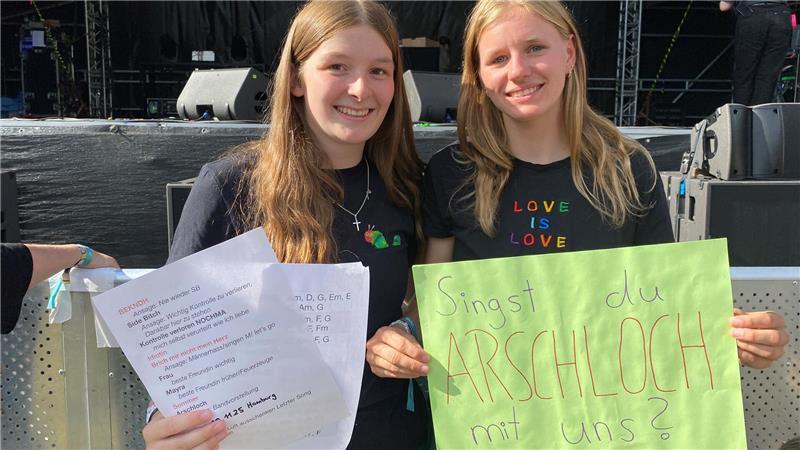 SEKNDH
Ansage: Nie wieder SB
Side Bitch
Ansage: Wichtig Kontrolle zu verlieren,
Dankbar hier zu stehen
Kontrolle verloren NOCHMA
mich selbst verurteilt wie ich liebe
Idiotin
Brich mir nicht mein Herz
Ansage: Männerhass/singen M/ let's go
Frau
beste Freundin wichtig
Mayra
beste Freundin früher/Feuerzeuge
Sommer
Arschloch
Bandvorstellung
11.25 Hamburg
Luft aussuchen Letzter Song
Am, D, G, Em, E
Am, G
Em, F, G
F, G
F, Em
LOVE
IS
LOVE
Singst du
ARSCHLOCH
mit uns?